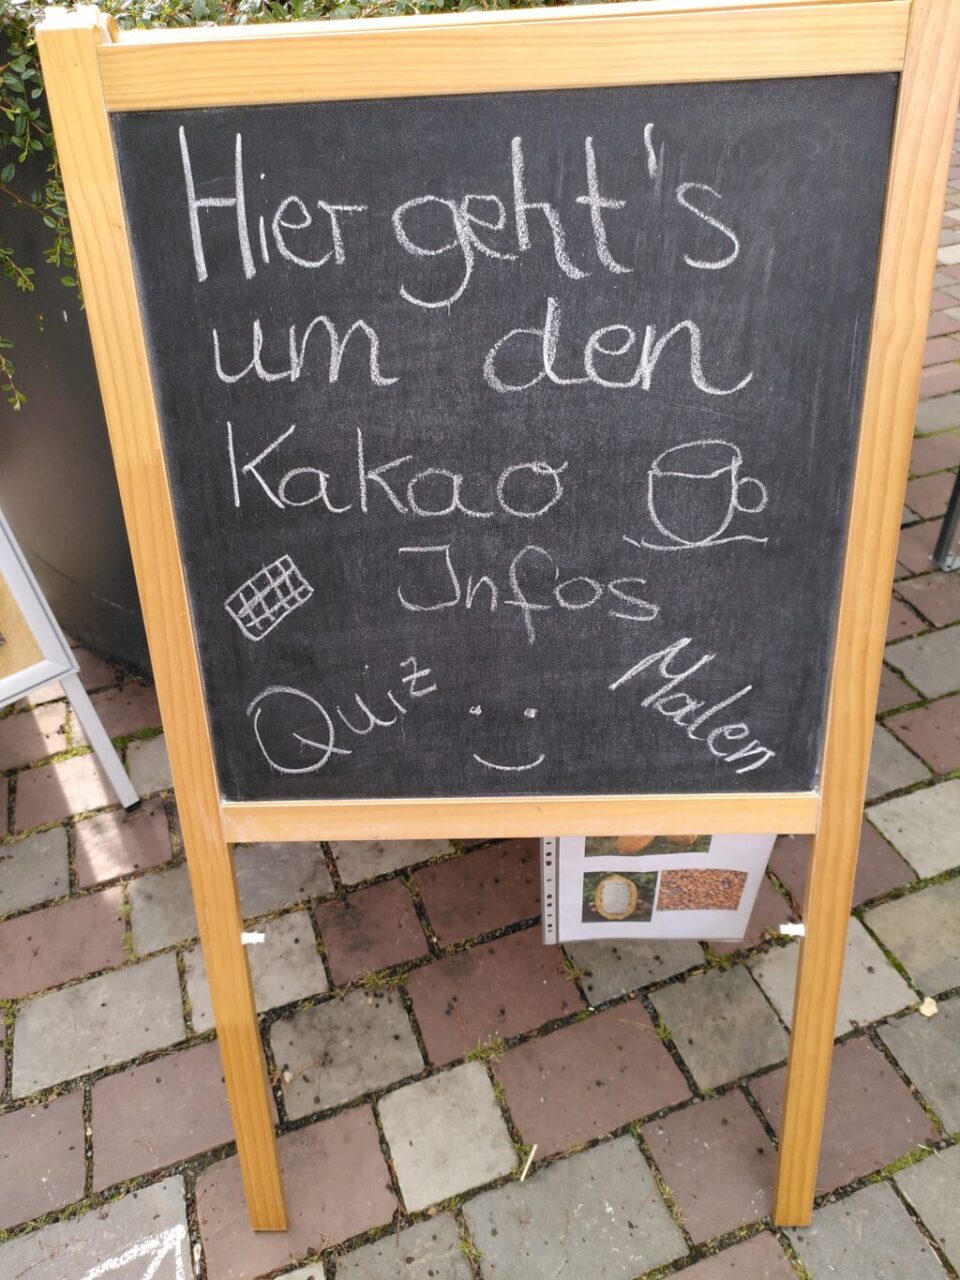 Hier geht's
um den
Kakao
Infos
Quiz
Malen